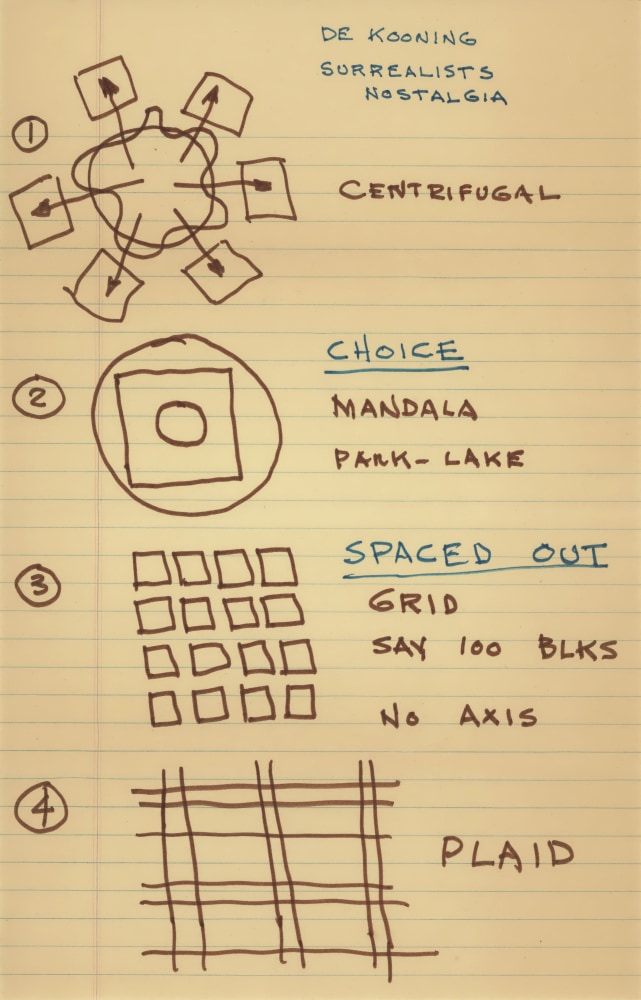 DE KOONING
SURREALISTS
NOSTALGIA
1
CENTRIFUGAL
CHOICE
2
MANDALA
PARK-LAKE
SPACED OUT
3
GRID
SAY 100 BLKS
NO AXIS
4
PLAID